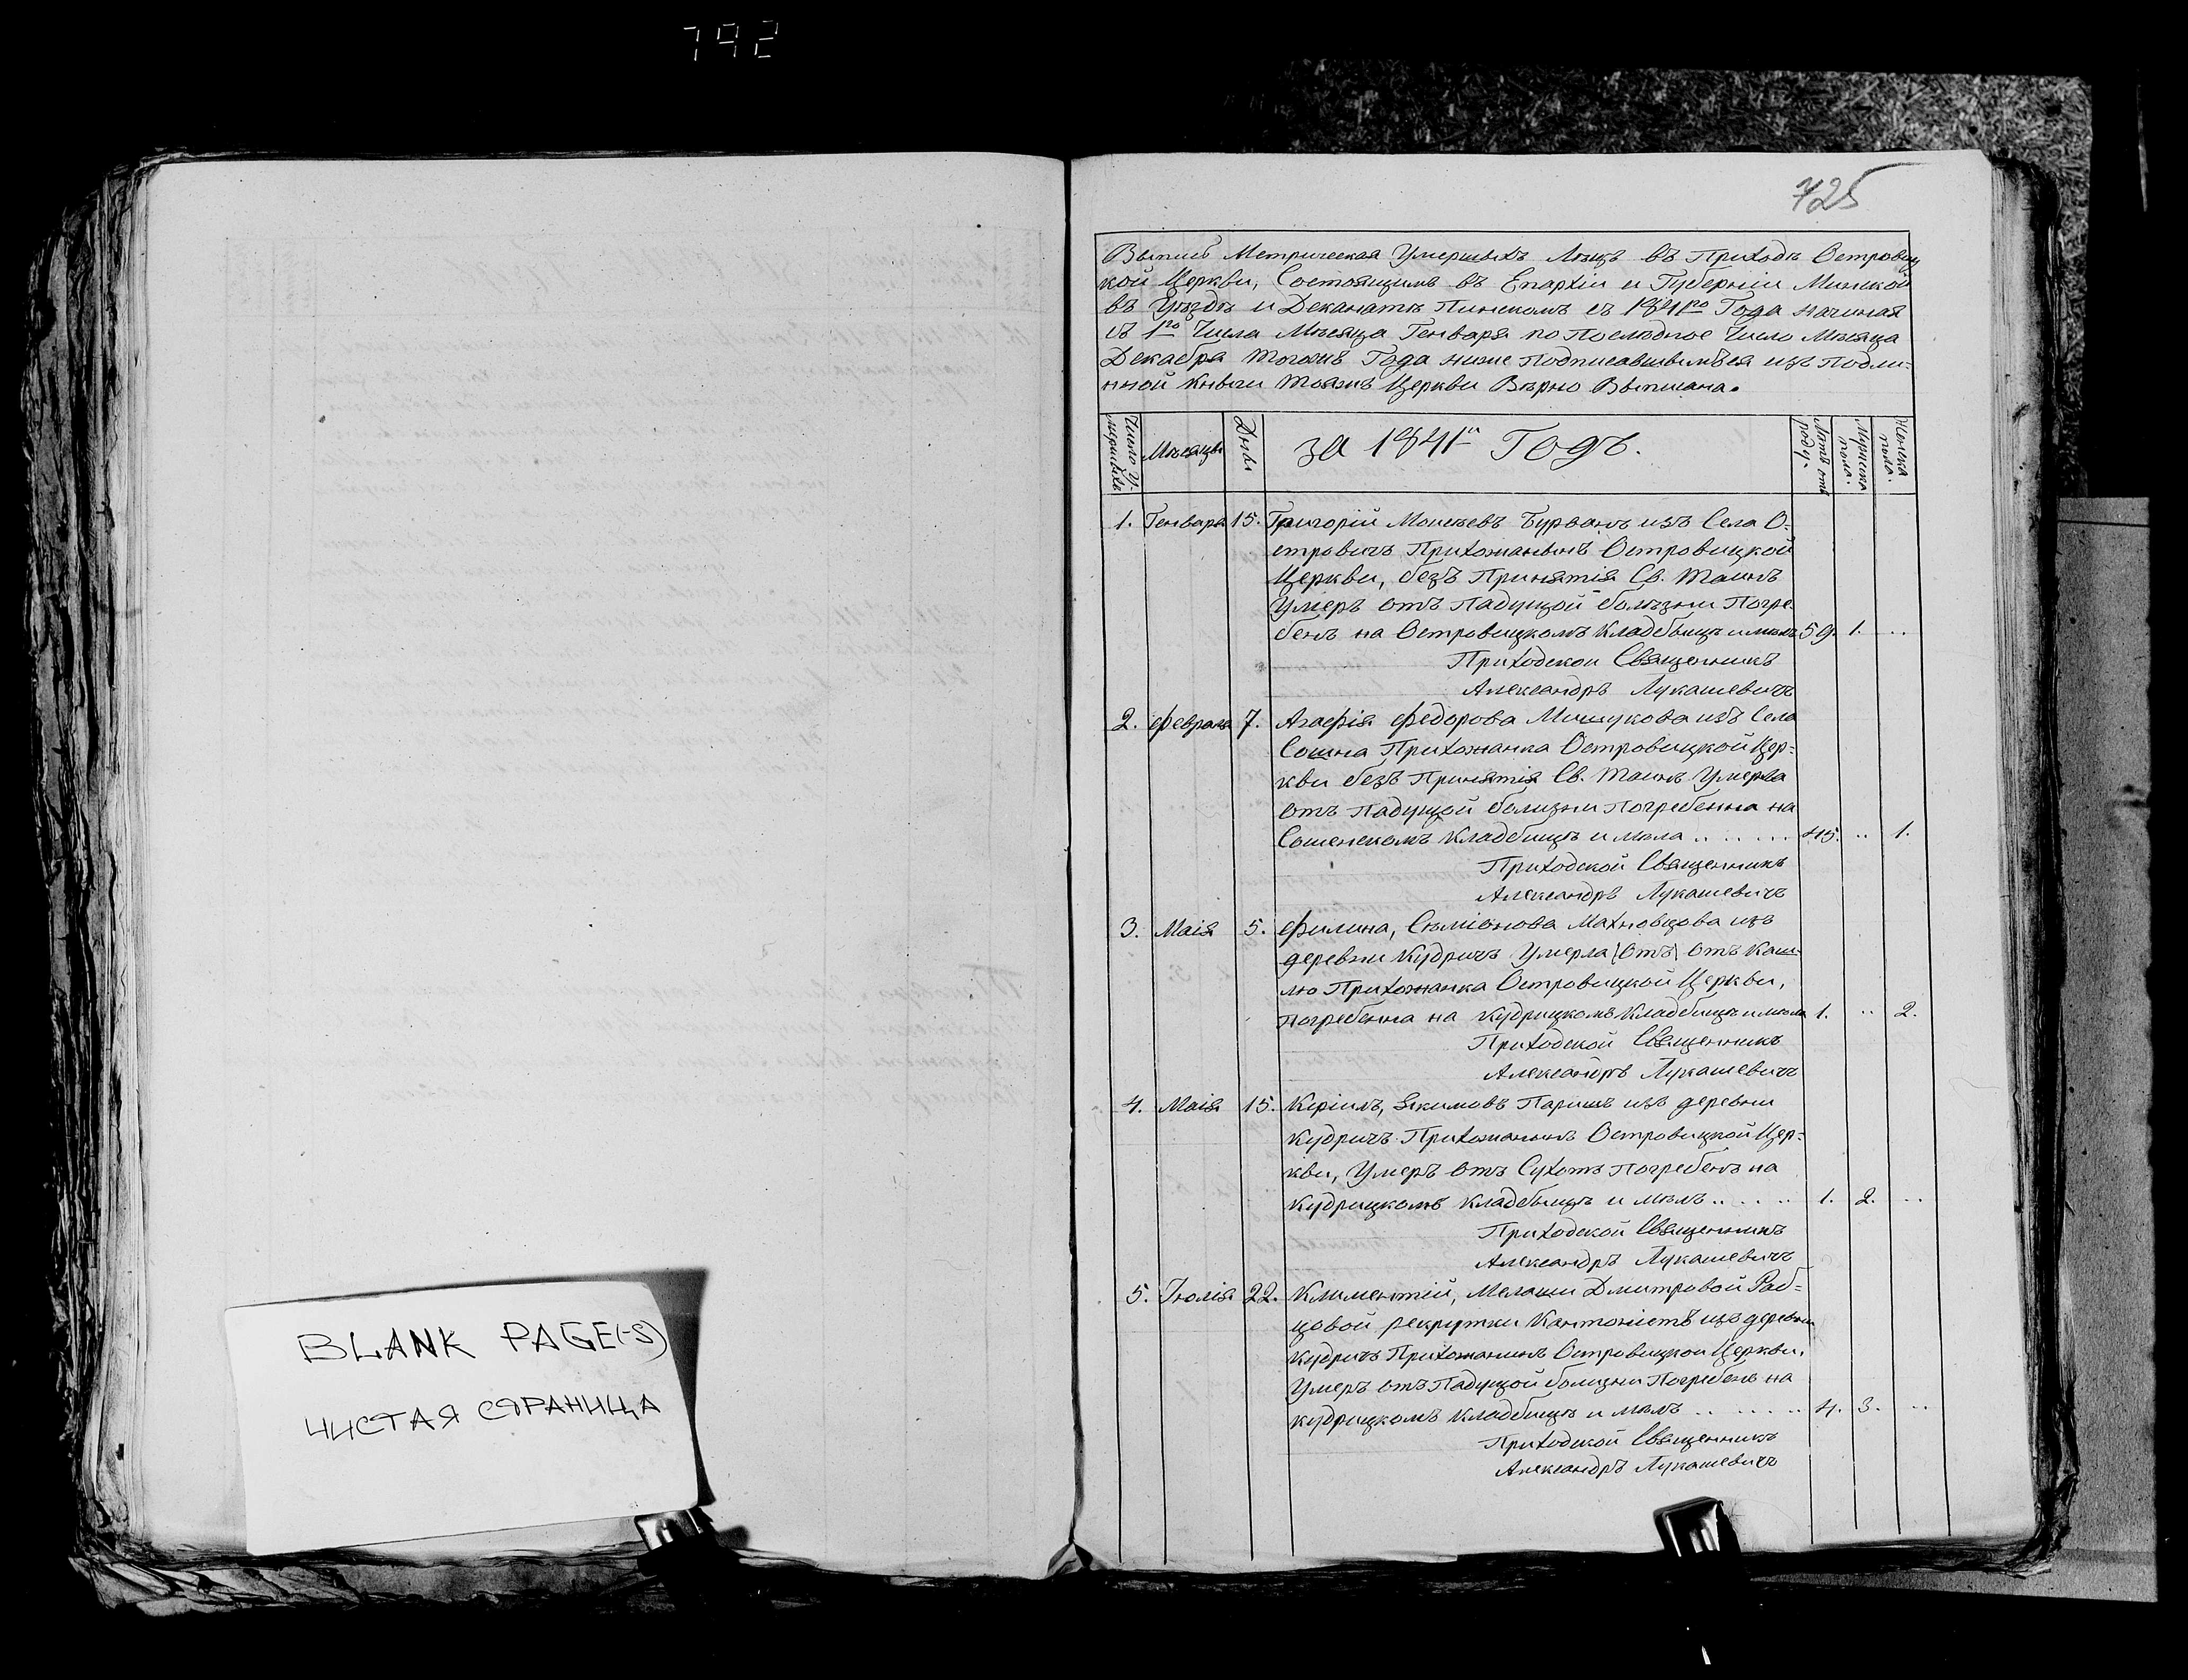 792
725
Выпись Метрическая Умершихъ Лицъ въ Приходѣ Островиц
кой Церкви, Состоящимъ въ Епархіи и Губерніи Минской
въ Уѣздѣ и Деканатѣ Пинскомъ съ 1841го Года начиная
съ 1го Числа Мѣсяца Генваря по Послѣдное Число Мѣсяца
Декабря тогожъ Года ниже Подписавшимъся изъ Подли-
нной Книги тояжъ Церкви Вѣрно Выписана.
Число У-
мершихъ
Мѣсяцы
Дни
за 1841й Годъ.
Лѣта отъ
роду.
Мужеска
пола.
Женска
пола.
1. Генваря 15. Григорій Моисеевъ Бурванъ изъ Села О-
стровичъ Прихожанинъ Островицкой
Церкви, безъ Принятія Св. Таинъ
Умеръ отъ Падущой болѣзни Погре
бенъ на Островицкомъ Кладбищѣ имѣлъ 59. 1. ..
Приходской Священникъ
Александръ Лукашевичъ
2. Февраля 7. Агафія Федорова Мишукова изъ Села
Сошна Прихожанка Островицкой Цер-
кви безъ Принятія Св. Таинъ Умерла
отъ Падущой болизни Погребенна на
Сошенскомъ Кладбищѣ имѣла .. .. .. 45. .. 1.
Приходской Священникъ
Александръ Лукашевичъ
3. Маія 5. Филина, Сѣміонова Махновцова изъ
деревни Кудричъ Умерла (отъ) отъ Каш-
лю Прихожанка Островицкой Церкви,
Погребенна на Кудрицкомъ Кладбищѣ имѣла 1. .. 2.
Приходской Священникъ
Александръ Лукашевичъ
4. Маія 15. Киріилъ, Якимовъ Паришъ изъ деревни
Кудричъ Прихожанинъ Островицкой Цер-
кви, Умеръ отъ Сухотъ Погребенъ на
Кудрицкомъ Кладбищѣ и мѣлъ .. .. .. 1. 2. ..
Приходской Священникъ
Александръ Лукашевичъ
5. Іюлія 22. Климентій, Мелашки Дмитровой Раб-
цовой рекрутки Кантонистъ изъ деревни
Кудричъ Прихожанинъ Островицкои Церкви.
Умеръ отъ Падущой болизни Погребенъ на
Кудрицкомъ Кладбищѣ и мѣлъ .. .. .. 4. 3. ..
Приходской Священникъ
Александръ Лукашевичъ
BLANK PAGE(-S)
ЧИСТАЯ СТРАНИЦА